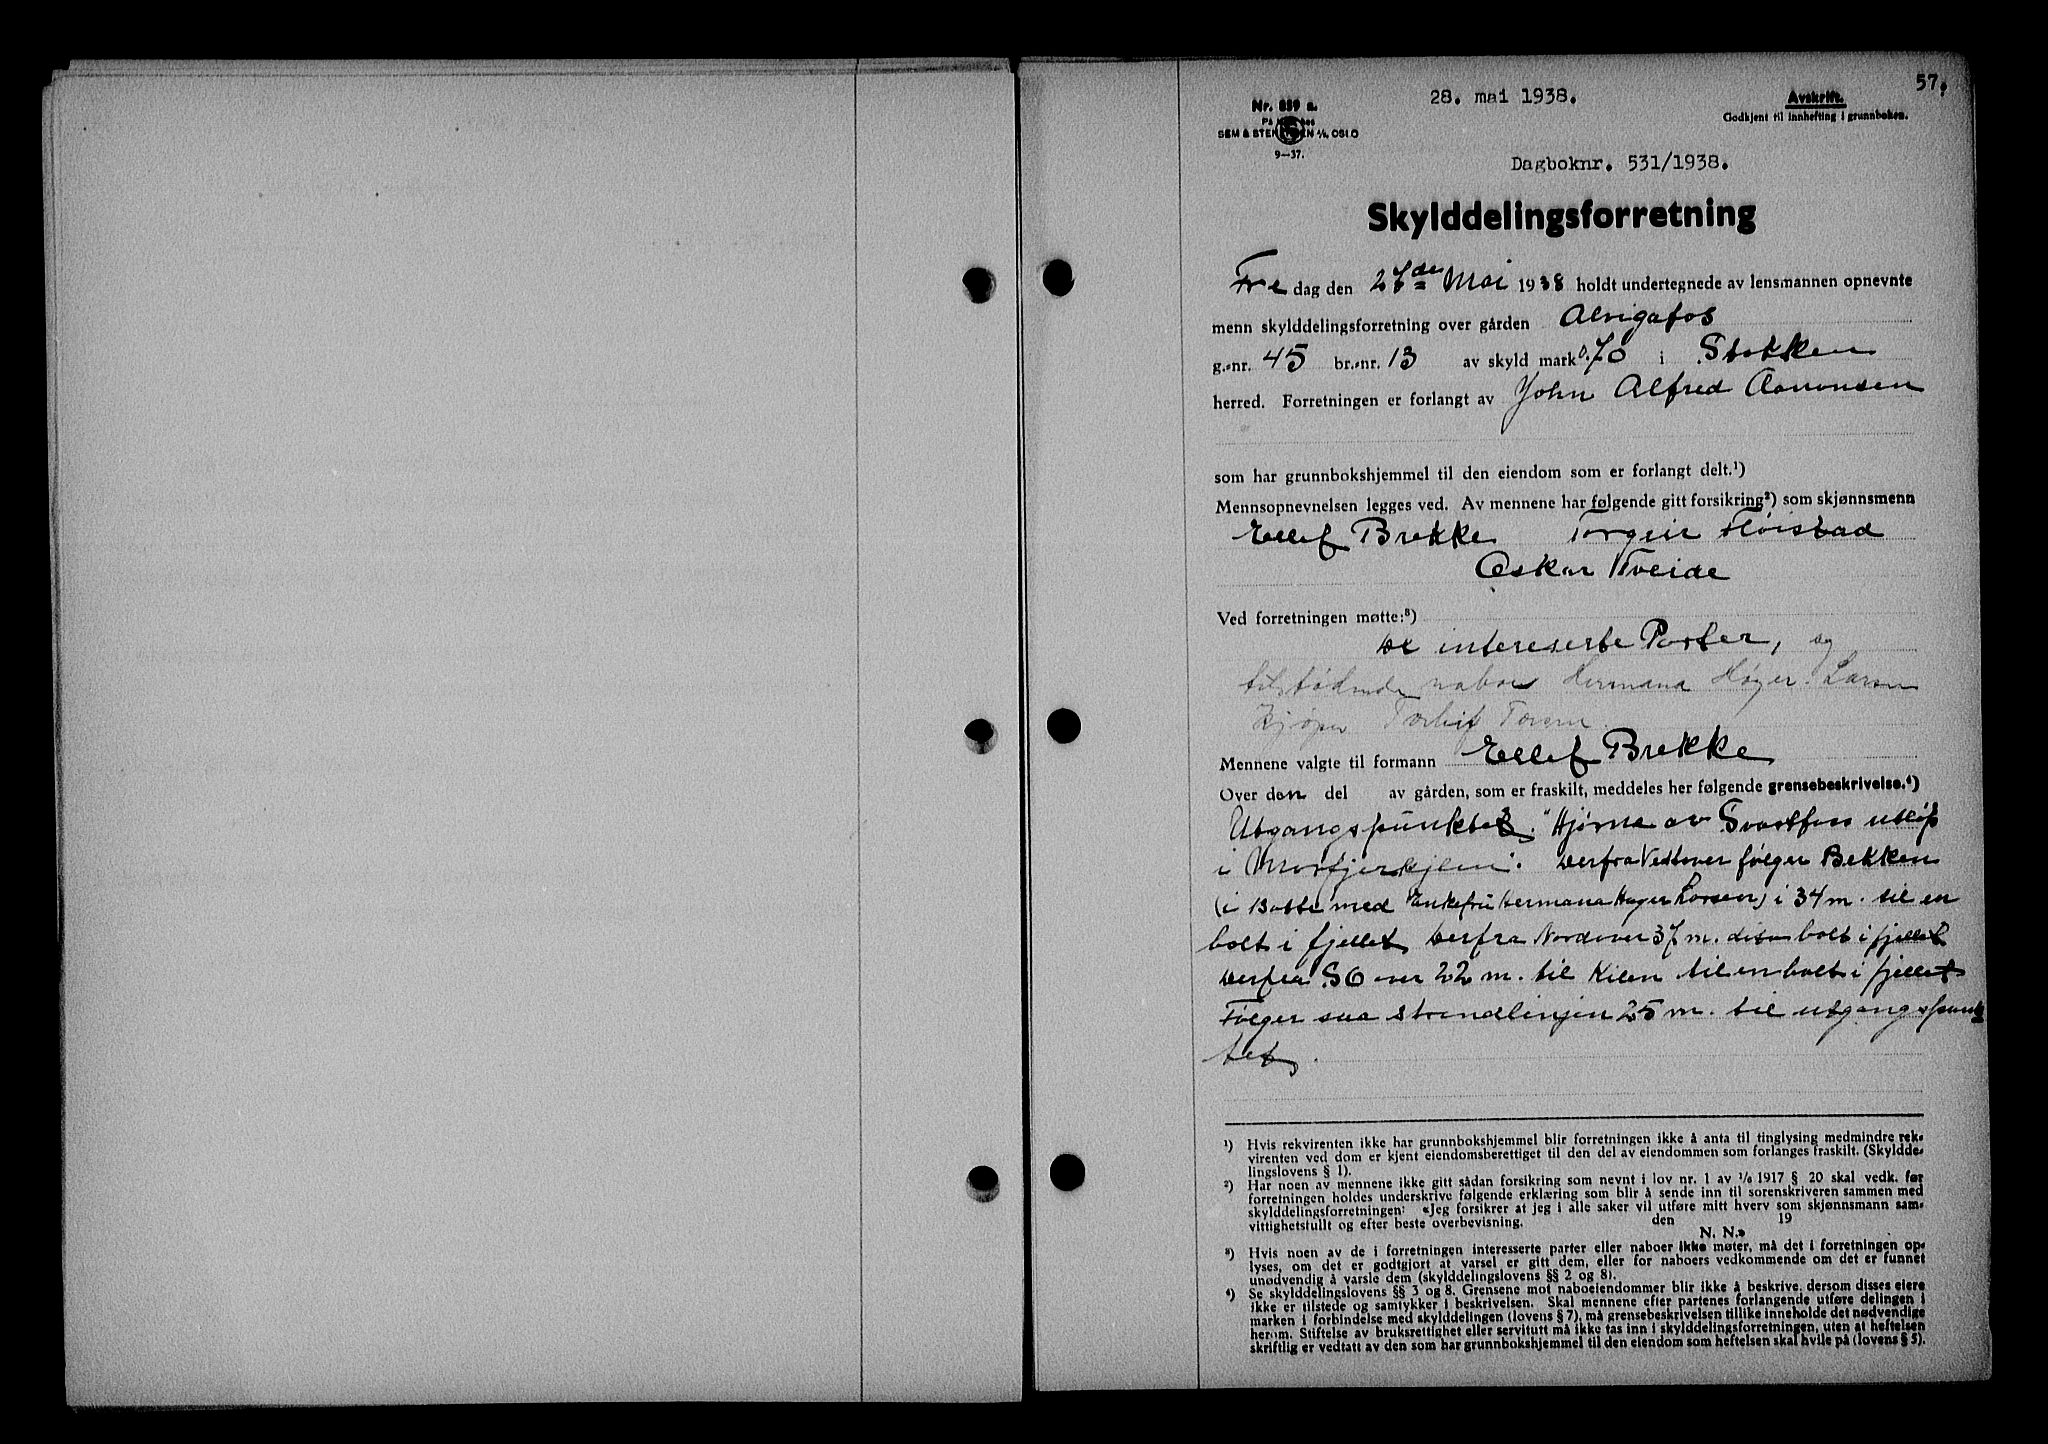 57.
28. mai 1938.
Nr. 839 a.
Avskrift.
Godkjent til innhefting i grunnboken.
SEM & STENERSEN A/S, OSLO
9—37.
Dagboknr. 531/1938.
Skylddelingsforretning
Fre dag den 27de Mai 1938 holdt undertegnede av lensmannen opnevnte
menn skylddelingsforretning over gården Alvigafos
g.-nr. 45 br.-nr. 13 av skyld mark 0.70 i Stokken
herred. Forretningen er forlangt av John Alfred Aanonsen
som har grunnbokshjemmel til den eiendom som er forlangt delt.¹)
Mennsopnevnelsen legges ved. Av mennene har følgende gitt forsikring²) som skjønnsmenn
Ellef Brekke Torgeir Fløistad
Oskar Tveide
Ved forretningen møtte:³)
De intereserte Parter, og
tilstødende naboer Hermana Høyer Larsen
Kjøper
Mennene valgte til formann Ellef Brekke
Over den del av gården, som er fraskilt, meddeles her følgende grensebeskrivelse.⁴)
Utgangspunktet. "Hjørne av Svartfoss utløp
i Derfra Vestover følger Bekken
(i Bytte med Enkefru Hermana Høyer Larsen) i 34 m. til en
bolt i fjellet Derfra Nordover 37 m. bolt i fjellet
Derfra SO over 22 m. til Kilen til en bolt i fjellet
Følger saa strandlinjen 25 m. til utgangspunk
tet.
¹) Hvis rekvirenten ikke har grunnbokshjemmel blir forretningen ikke å anta til tinglysing medmindre rek-
virenten ved dom er kjent eiendomsberettiget til den del av eiendommen som forlanges fraskilt. (Skyldde-
lingslovens § 1).
²) Har noen av mennene ikke gitt sådan forsikring som nevnt i lov nr. 1 av 1/6 1917 § 20 skal vedk. før
forretningen holdes underskrive følgende erklæring som blir å sende inn til sorenskriveren sammen med
skylddelingsforretningen: «Jeg forsikrer at jeg i alle saker vil utføre mitt hverv som skjønnsmann sam-
vittighetsfullt og efter beste overbevisning. den 19
N. N.»
³) Hvis noen av de i forretningen interesserte parter eller naboer ikke møter, må det i forretningen op-
lyses, om det er godtgjort at varsel er gitt dem, eller for naboers vedkommende om det er funnet
unødvendig å varsle dem (skylddelingslovens §§ 2 og 8).
⁴) Se skylddelingslovens §§ 3 og 8. Grensene mot naboeiendommer blir ikke å beskrive, dersom disses eiere
ikke er tilstede og samtykker i beskrivelsen. Skal mennene efter partenes forlangende utføre delingen i
marken i forbindelse med skylddelingen (lovens § 7), må grensebeskrivelsen tillike inneholde det nødvendige
herom. Stiftelse av bruksrettighet eller servitutt må ikke tas inn i skylddelingsforretningen, uten at heftelsen
skriftlig er vedtatt av den som har grunnbokshjemmel til den eiendom som heftelsen skal hvile på (lovens § 5).